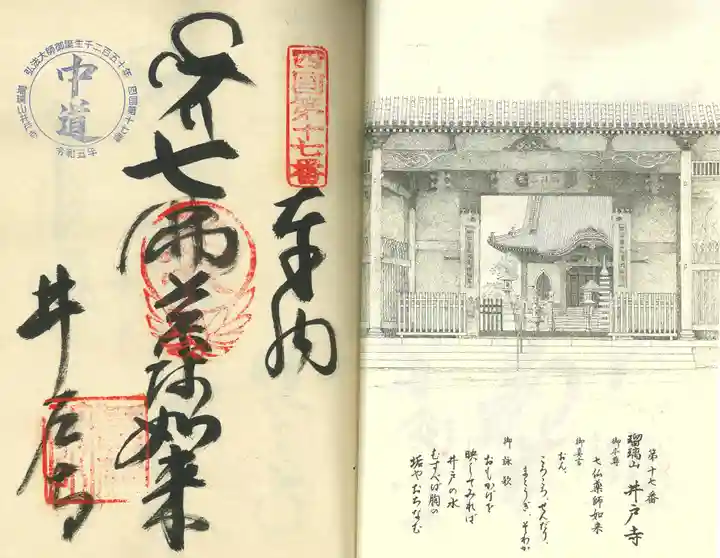 四國第十七番
奉納
七佛薬師如来
井戸寺
弘法大師御誕生千二百五十年
四國第十七番
中道
令和五年
第十七番
瑠璃山 井戸寺
御本尊
七仏薬師如来
御真言
おん、
ころころ、せんだり、
まとうぎ、そわか
御詠歌
おもかげを
映してみれば
井戸の水
むすべば胸の
垢やおちなむ